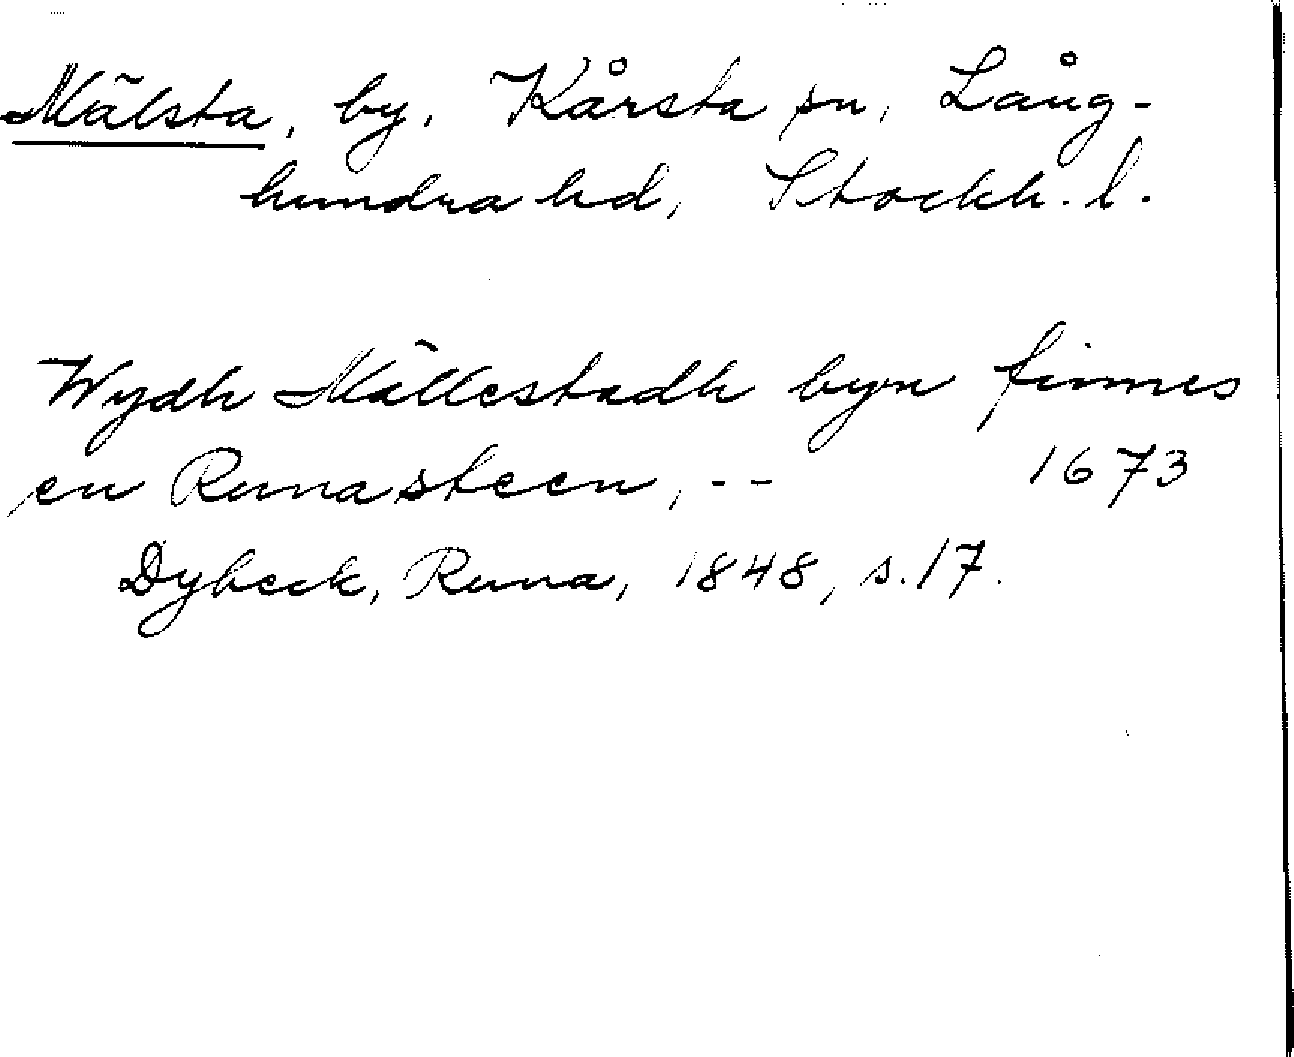 Mälsta, by, Kårsta sn, Lång-
hundra hd, Stockh. l.
Wydh Mällestadh byn finnes
en Runasteen, -- 1673
Dybeck, Runa, 1848, s. 17.